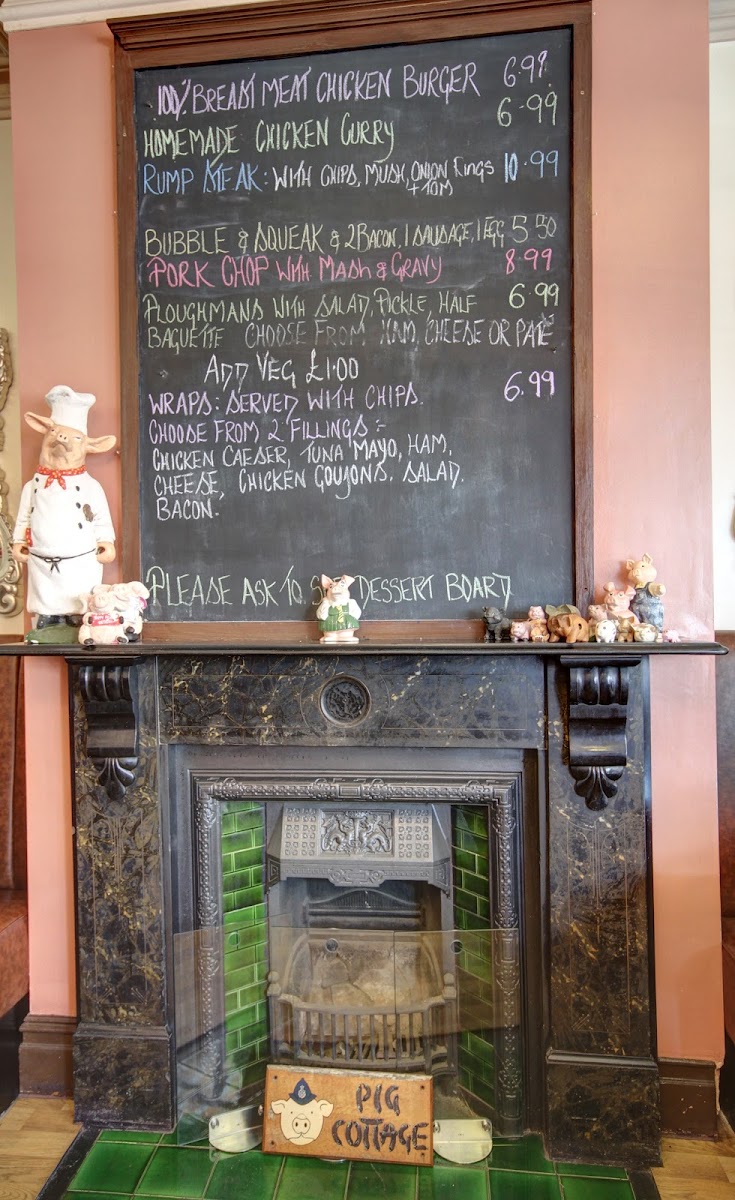 100% BREAST MEAT CHICKEN BURGER 6.99
HOMEMADE CHICKEN CURRY 6.99
RUMP STEAK: WITH CHIPS, MUSH, ONION RINGS 10.99
+ TOM
BUBBLE & SQUEAK & 2 BACON, 1 SAUSAGE, 1 EGG 5.50
PORK CHOP WITH MASH & GRAVY 8.99
PLOUGHMANS WITH SALAD, PICKLE, HALF 6.99
BAGUETTE CHOOSE FROM HAM, CHEESE OR PATE
ADD VEG £1.00
WRAPS: SERVED WITH CHIPS. 6.99
CHOOSE FROM 2 FILLINGS:-
CHICKEN CAESER, TUNA MAYO, HAM,
CHEESE, CHICKEN GOUJONS. SALAD.
BACON.
PLEASE ASK TO DESSERT BOARD
PIG
COTTAGE